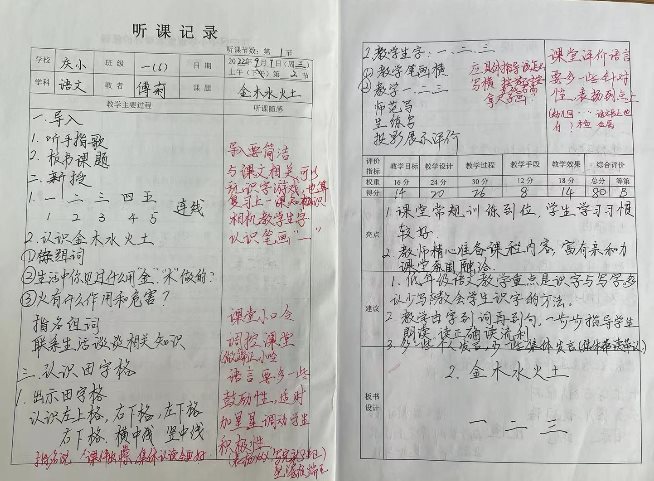 听课记录
听课节数：第1节
学校 庆小 班级 一(6) 日期 2022年9月1日(周三)
上午(下午)第2节
学科 语文 教者 傅莉 课题 金木水火土
教学主要过程 听课随感
一.导入
1.听手指歌
2.板书课题
二.新授
1.一 二 三 四 五
1 2 3 4 5 连线
2.认识金木水火土
①练组词
②生活中你见过什么用金"木"做的?
③火有什么作用和危害?
指名组词
联系生活谈谈相关知识
三.认识田字格
1.出示田字格
认识左上格.右下格.左下格.
右下格.横中线 竖中线
导入要简洁
与课文相关,可
玩识字游戏,也算
复习上一课知识
相机教学生字
认识笔画"一"
课堂小口令
调控课堂
语言要多一些
鼓励性,适时
加星星调动学生
积极性
2.教学生字:一.二.三
①教学笔画横
②教学一.二.三
师范写
生练写
投影展示评价
课堂评价语言
要多一些针对
性,表扬到点上
评价指标 教学目标 教学设计 教学过程 教学手段 教学效果 综合评价
权重 16分 24分 30分 12分 18分 总分 等第
得分 14 26 8 14 80 B
亮点
1.课堂常规训练到位,学生学习习惯
较好.
2.教师精心准备课程内容,富有亲和力
课堂氛围融洽.
建议
1.低年级语文教学重点是识字与写字,多
认少写,教会学生识字的方法.
2.教学由字到词再到句,一步步指导学生
朗读,读正确读流利
板书设计
2.金木水火土
一 二 三